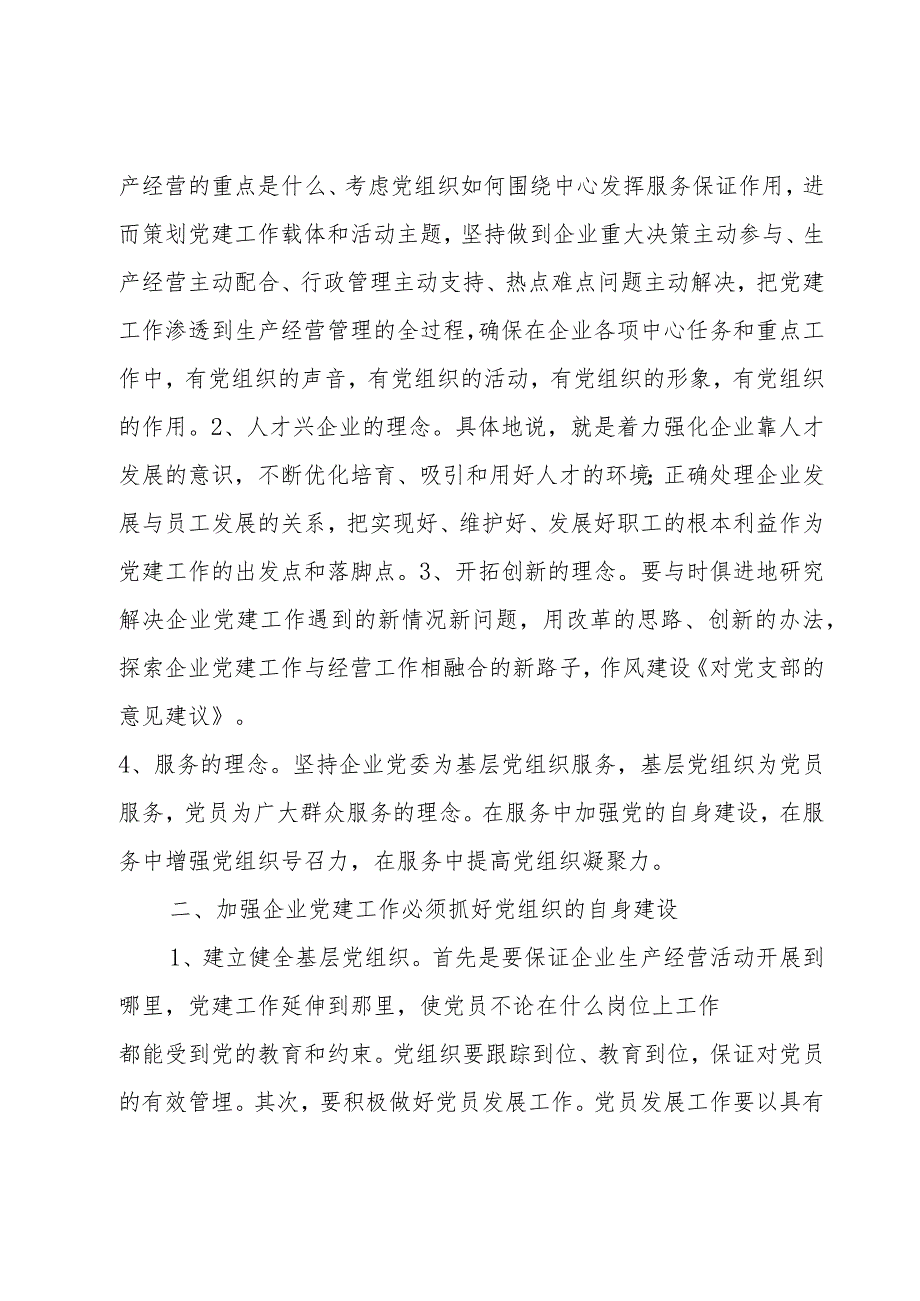 产经营的重点是什么、考虑党组织如何围绕中心发挥服务保证作用，进
而策划党建工作载体和活动主题，坚持做到企业重大决策主动参与、生
产经营主动配合、行政管理主动支持、热点难点问题主动解决，把党建
工作渗透到生产经营管理的全过程，确保在企业各项中心任务和重点工
作中，有党组织的声音，有党组织的活动，有党组织的形象，有党组织
的作用。2、人才兴企业的理念。具体地说，就是着力强化企业靠人才
发展的意识，不断优化培育、吸引和用好人才的环境；正确处理企业发
展与员工发展的关系，把实现好、维护好、发展好职工的根本利益作为
党建工作的出发点和落脚点。3、开拓创新的理念。要与时俱进地研究
解决企业党建工作遇到的新情况新问题，用改革的思路、创新的办法，
探索企业党建工作与经营工作相融合的新路子，作风建设《对党支部的
意见建议》。
4、服务的理念。坚持企业党委为基层党组织服务，基层党组织为党员
服务，党员为广大群众服务的理念。在服务中加强党的自身建设，在服
务中增强党组织号召力，在服务中提高党组织凝聚力。
二、加强企业党建工作必须抓好党组织的自身建设
1、建立健全基层党组织。首先是要保证企业生产经营活动开展到
哪里，党建工作延伸到那里，使党员不论在什么岗位上工作
都能受到党的教育和约束。党组织要跟踪到位、教育到位，保证对党员
的有效管埋。其次，要积极做好党员发展工作。党员发展工作要以具有